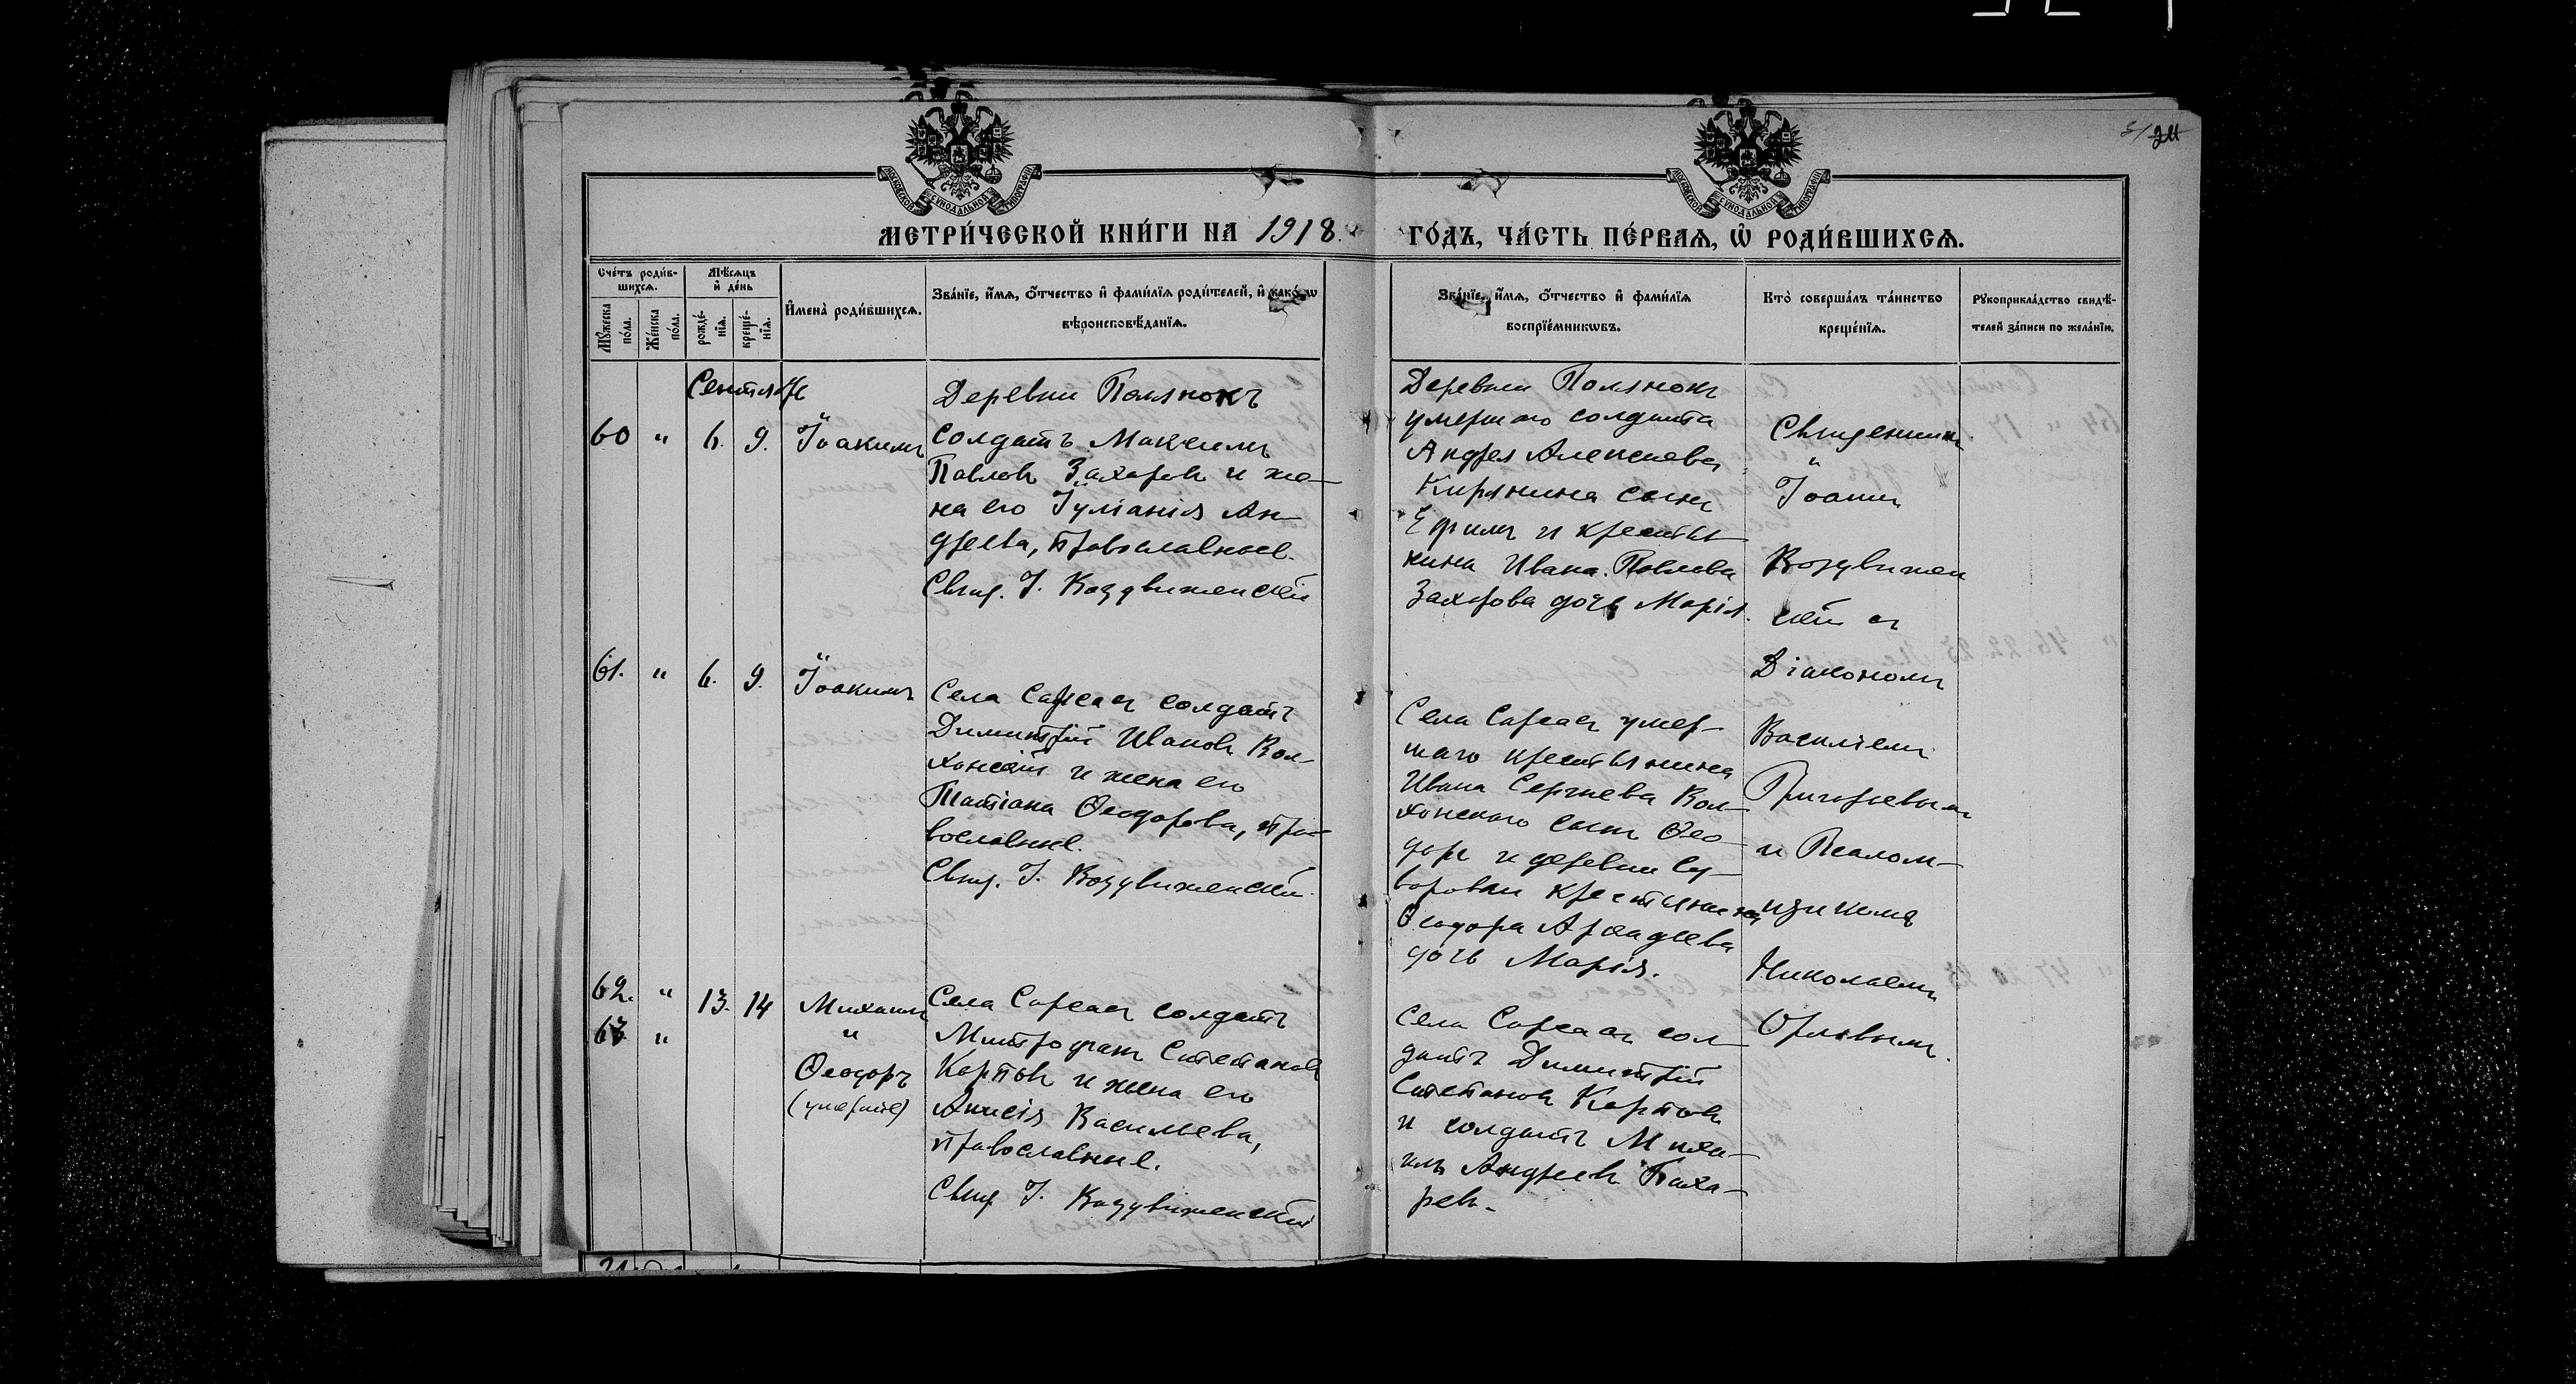 МЕТРИ́ЧЕСКОЙ КНИ́ГИ НА 1918.
ГО́ДЪ, ЧА́СТЬ ПЕ́РВАЯ, Ѡ РОДИ́ВШИХСЯ.
Сче́тъ роди́в-
шихся.
Мѣ́сяцъ
и де́нь
Мꙋ́жеска
по́ла.
Же́нска
по́ла.
рожде́-
нїя.
креще́-
нїя.
Имена̀ роди́вшихся.
Зва́нїе, и́мя, о́тчество и фами́лїя роди́телей, и како́гѡ
вѣроисповѣ́данїя.
Зва́нїе, и́мя, о́тчество и фами́лїя
воспрїе́мникѡвъ.
Кто̀ соверша́лъ та́инство
креще́нїя.
Рꙋкоприкла́дство свидѣ́-
телей за́писи по жела́нїю.
Сентябрь
60 " 6. 9. Іоакимъ
Деревни Полянокъ
солдатъ Максимъ
Павловъ Захаровъ и же-
на его Іуліанія Ан-
дреева, православные.
Свящ. І. Воздвиженскій
Деревни Полянокъ
умершаго солдата
Андрея Алексеева
Кирянина сынъ
Ефимъ и крестья-
нина Ивана Павлова
Захарова дочь Марія.
Священникъ
Іоаннъ
Воздвижен
скій съ
Діакономъ
Василіемъ
Григорьевымъ
и Псалом-
щикомъ
Николаемъ
Орловымъ.
61. " 6. 9. Іоакимъ
Села Сарсазъ солдатъ
Димитрій Ивановъ Вол-
хонскій и жена его
Татіана Ѳеодорова, пра-
вославные.
Свящ. І. Воздвиженскій.
Села Сарсазъ умер-
шаго крестьянина
Ивана Сергѣева Вол-
хонскаго сынъ Ѳео-
доръ и деревни Су-
воровки крестьянина
Ѳеодора Аркадіева
дочь Марія.
62. " 13. 14 Михаилъ
63. " "
Ѳеодоръ
(умершіе)
Села Сарсазъ солдатъ
Митрофанъ Степановъ
Карповъ и жена его
Анисія Васильева,
православные.
Свящ І. Воздвиженскій
Села Сарсазъ сол-
датъ Димитрій
Степановъ Карповъ
и солдатъ Миха-
илъ Андреевъ
ревъ.